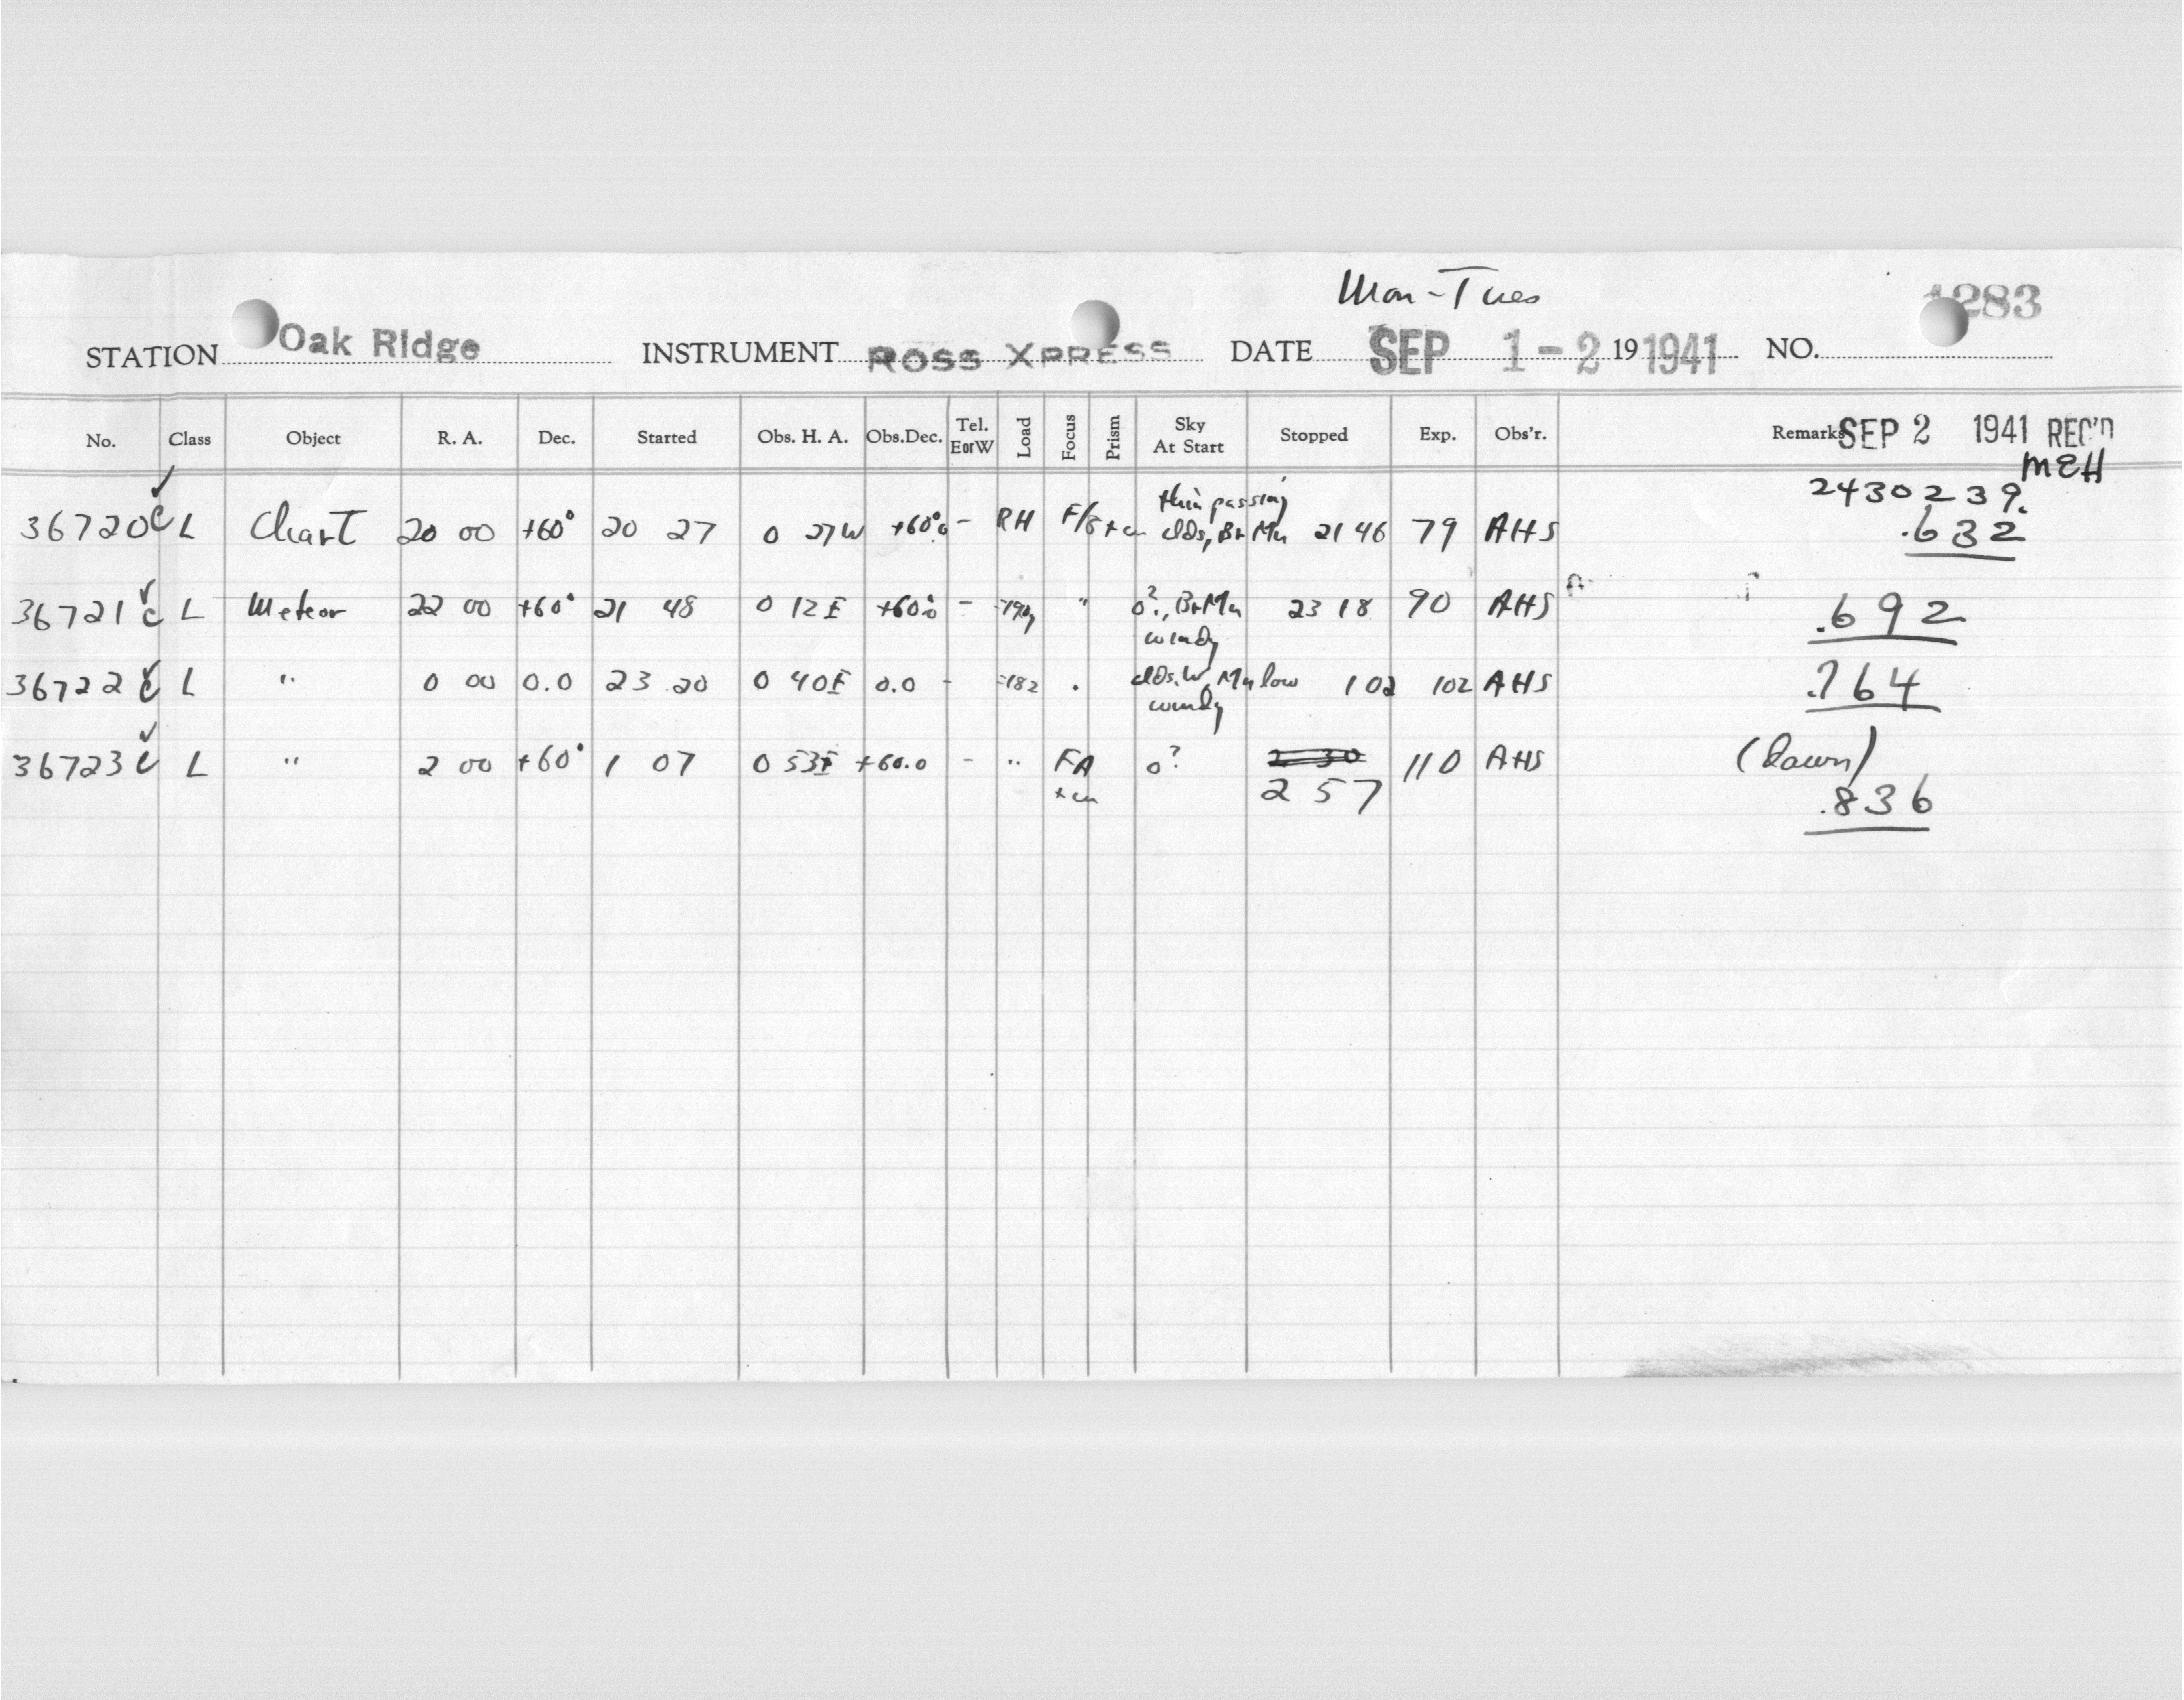 Mon-Tues
1283
STATION Oak Ridge INSTRUMENT ROSS XPRESS DATE SEP 1-2 19 1941 NO.
No. Class Object R. A. Dec. Started Obs. H. A. Obs.Dec. Tel. EorW Load Focus Prism Sky At Start Stopped Exp. Obs'r. Remarks SEP 2 1941 REC'D
MEH
2430239.
36720 C L Chart 20 00 +60° 20 27 0 27W +60.0 - RH thin passing clds, Br Mn 21 46 79 AHS .632
36721 C L Meteor 22 00 +60° 21 48 0 12E +60.0 - " 0?, Br Mn windy 23 18 90 AHS .692
36722 C L " 0 00 0.0 23 20 0 40E 0.0 - 182 clds. W, Mn low windy 1 02 102 AHS .764
36723 C L " 2 00 +60° 1 07 0 53E +60.0 - " FA 0? 2 30 110 AHS (Dawn)
2 57 .836